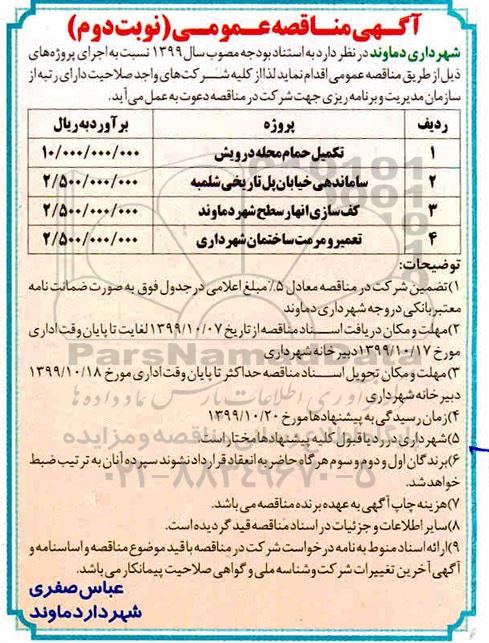 آگهی مناقصه عمومی (نوبت دوم)
شهرداری دماوند در نظر دارد به استناد بودجه مصوب سال ۱۳۹۹ نسبت به اجرای پروژه‌های
ذیل از طریق مناقصه عمومی اقدام نماید لذا از کلیه شرکت‌های واجد صلاحیت دارای رتبه از
سازمان مدیریت و برنامه ریزی جهت شرکت در مناقصه دعوت به عمل می‌آید.
ردیف پروژه برآورد به ریال
۱ تکمیل حمام محله درویش ۱۰/۰۰۰/۰۰۰/۰۰۰
۲ ساماندهی خیابان پل تاریخی شلمبه ۲/۵۰۰/۰۰۰/۰۰۰
۳ کف سازی انهار سطح شهر دماوند ۲/۵۰۰/۰۰۰/۰۰۰
۴ تعمیر و مرمت ساختمان شهرداری ۲/۵۰۰/۰۰۰/۰۰۰
توضیحات:
۱)تضمین شرکت در مناقصه معادل ۵٪ مبلغ اعلامی در جدول فوق به صورت ضمانت نامه
معتبر بانکی در وجه شهرداری دماوند
۲)مهلت و مکان دریافت اسناد مناقصه از تاریخ ۱۳۹۹/۱۰/۰۷ لغایت تا پایان وقت اداری
مورخ ۱۳۹۹/۱۰/۱۷ دبیرخانه شهرداری
۳)مهلت و مکان تحویل اسناد مناقصه حداکثر تا پایان وقت اداری مورخ ۱۳۹۹/۱۰/۱۸
دبیرخانه شهرداری
۴)زمان رسیدگی به پیشنهادها مورخ ۱۳۹۹/۱۰/۲۰
۵)شهرداری در رد یا قبول کلیه پیشنهادها مختار است.
۶)برندگان اول و دوم و سوم هرگاه حاضر به انعقاد قرارداد نشوند سپرده آنان به ترتیب ضبط
خواهد شد.
۷)هزینه چاپ آگهی به عهده برنده مناقصه می باشد.
۸)سایر اطلاعات و جزئیات در اسناد مناقصه قید گردیده است.
۹)ارائه اسناد منوط به نامه درخواست شرکت در مناقصه با قید موضوع مناقصه و اساسنامه و
آگهی آخرین تغییرات شرکت و شناسه ملی و گواهی صلاحیت پیمانکار می باشد.
عباس صفری
شهردار دماوند
ParsNamadData
۰۲۱-۸۸۳۴۹۶۷۰-۵